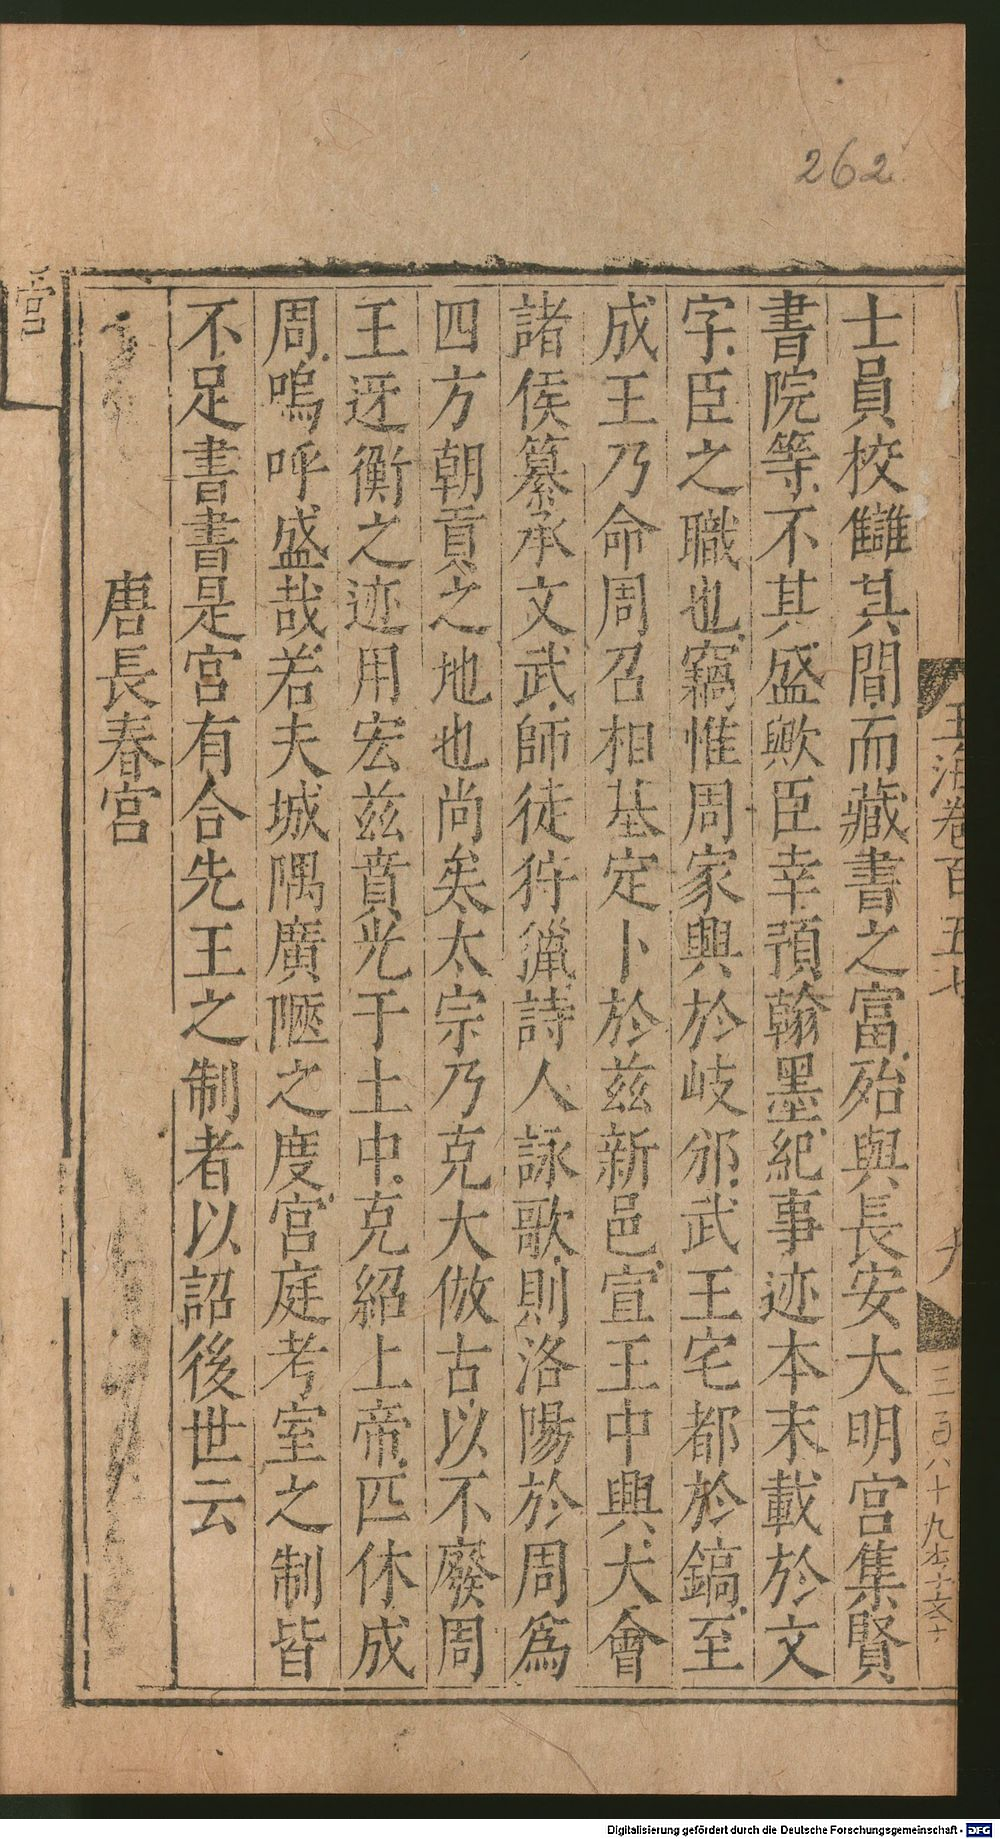 262
玉海卷百五七
士員校讎其間而藏書之富殆與長安大明宮集賢
書院等不其盛歟臣幸預翰墨紀事迹本末載於文
字臣之職也竊惟周家興於岐邠武王宅都於鎬至
成王乃命周召相基定卜於兹新邑宣王中興大會
諸侯纂承文武師徒狩獵詩人詠歌則洛陽於周爲
四方朝貢之地也尚矣太宗乃克大倣古以不廢周
王迓衡之迹用宏兹賁光于土中克紹上帝匹休成
周嗚呼盛哉若夫城隅廣陿之度宮庭考室之制皆
不足書書是宮有合先王之制者以詔後世云
唐長春宮
宮
Digitalisierung gefördert durch die Deutsche Forschungsgemeinschaft - DFG